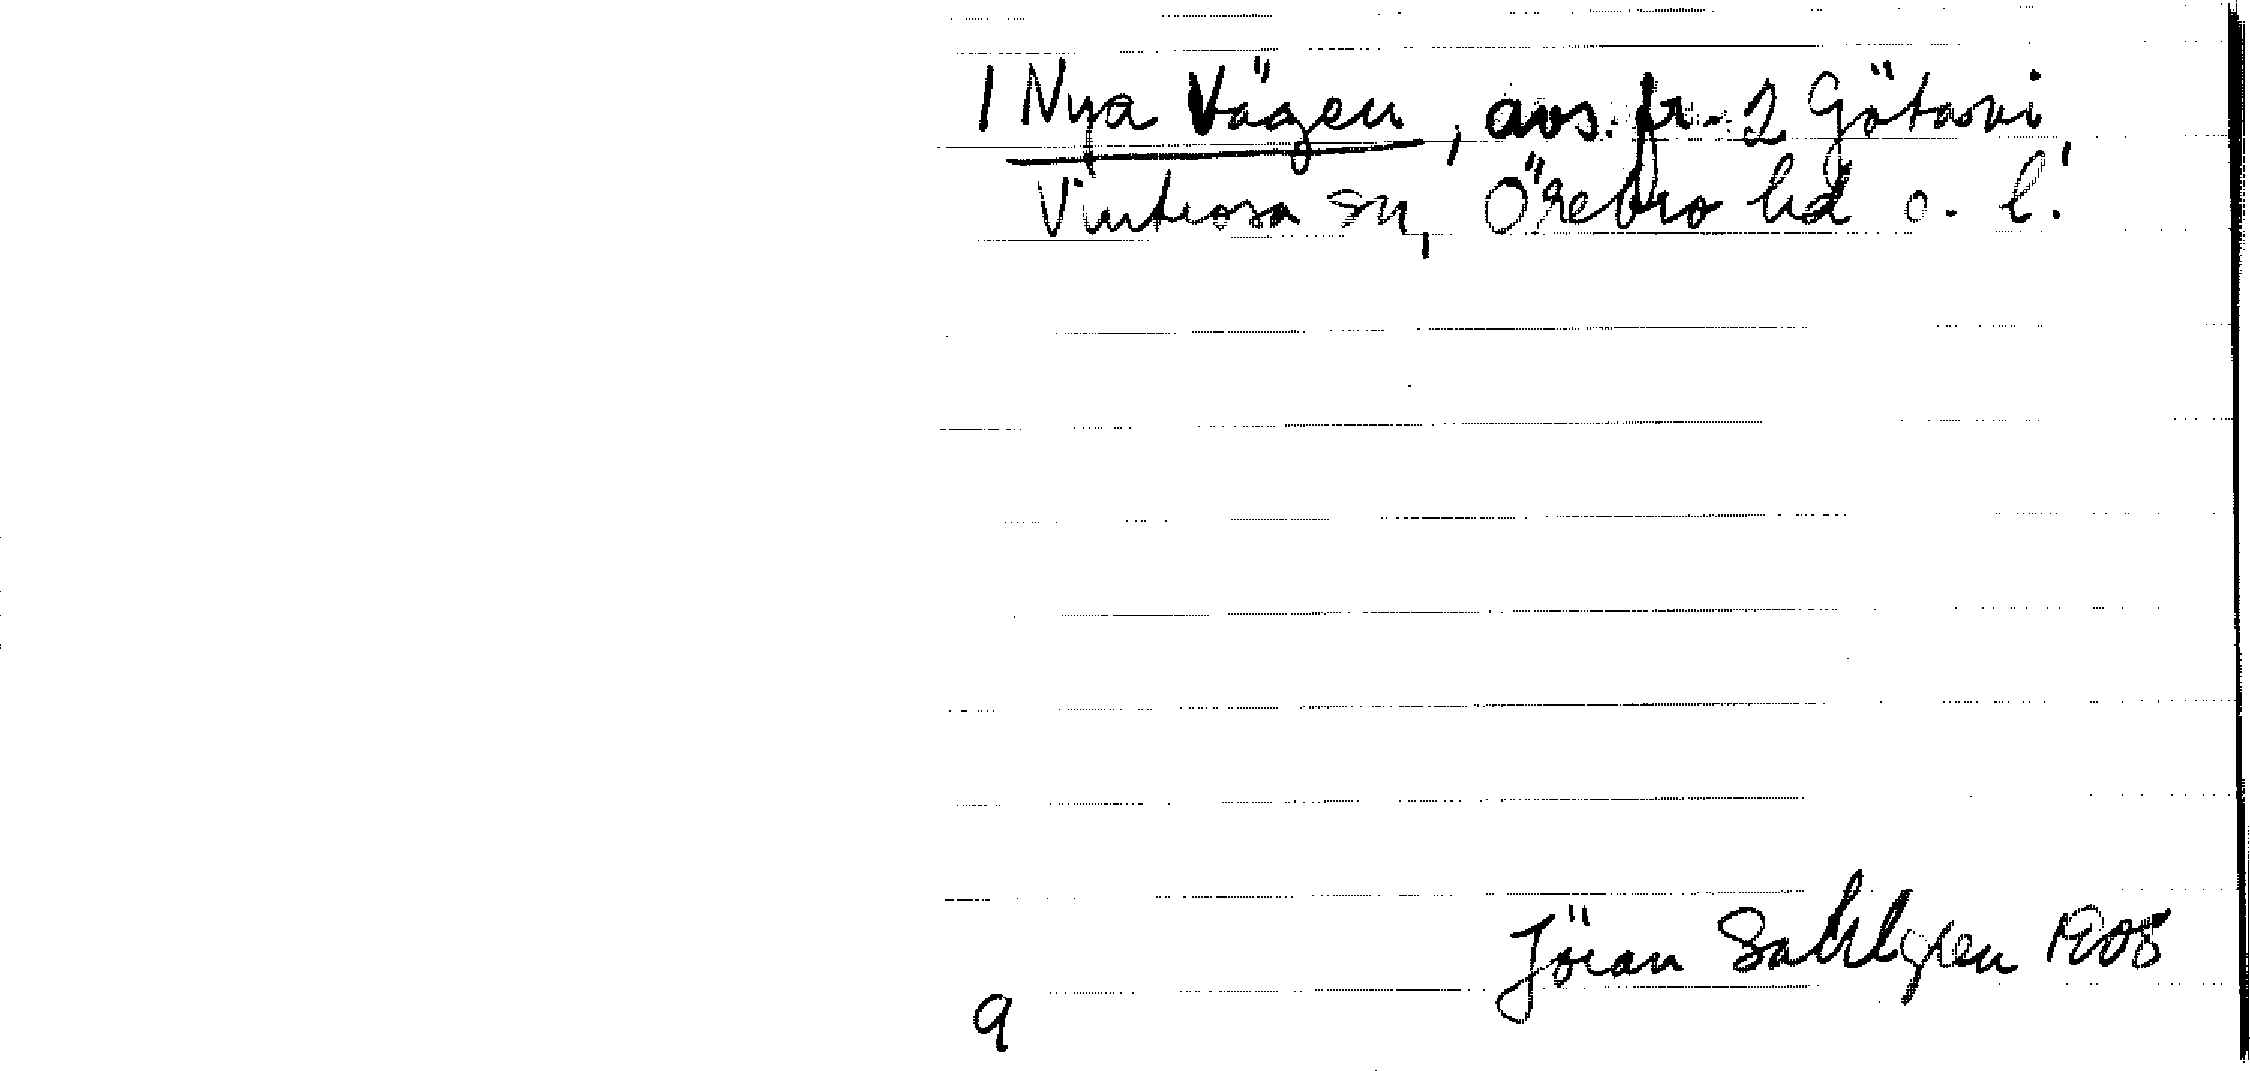 1 Nya Vägen, avs. fr. 2 Götavi,
Vintrosa sn, Örebro hd o. l.
Jöran Sahlgren 1908
9